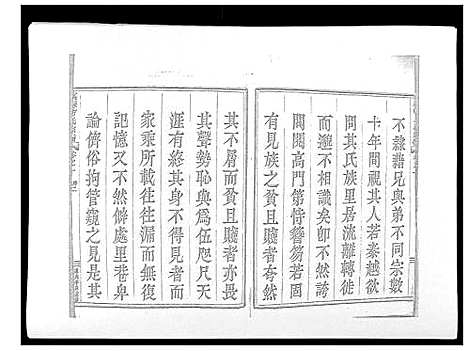 不隸籍兄與弟不同宗數
十年間視其人若秦越欲
問其氏族里居離轉徙
而遂不相識矣卽不然或
閥閱高門第恃簪笏若固
有見族之貧且賤者夸然
其不屑而貧且賤者亦長
其聲勢恥與為伍咫尺天
涯有終身不得見者而
家乘所載往往漏而無復
記憶又不然僻處里巷卑
論儕俗拘管窺之見是其